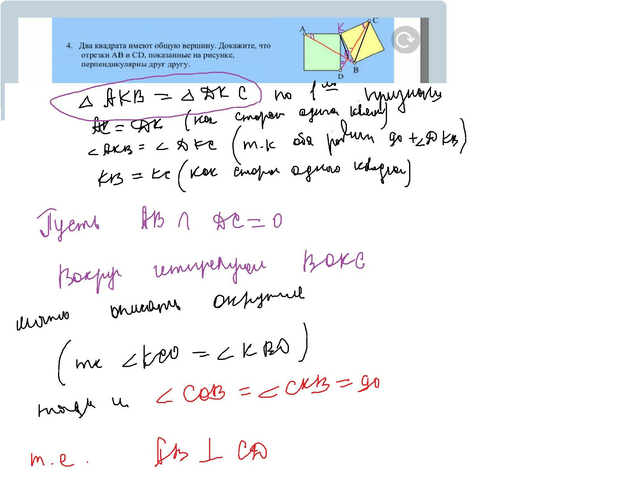 4. Два квадрата имеют общую вершину. Докажите, что
отрезки AB и CD, показанные на рисунке,
перпендикулярны друг другу.
A
K
C
D
B
△ AKB = △ DKC по 1ому признаку
AK = DK (как сторон одного квад)
∠AKB = ∠DKC (т.к оба равны 90 + ∠DKB)
KB = KC (как сторон одного квадрата)
Пусть AB ∩ DC = O
Вокруг четырехугол BOKC
можно описать окружнос
(тк ∠KCO = ∠KBO)
тогда и ∠COB = ∠CKB = 90
т.е. AB ⊥ CD